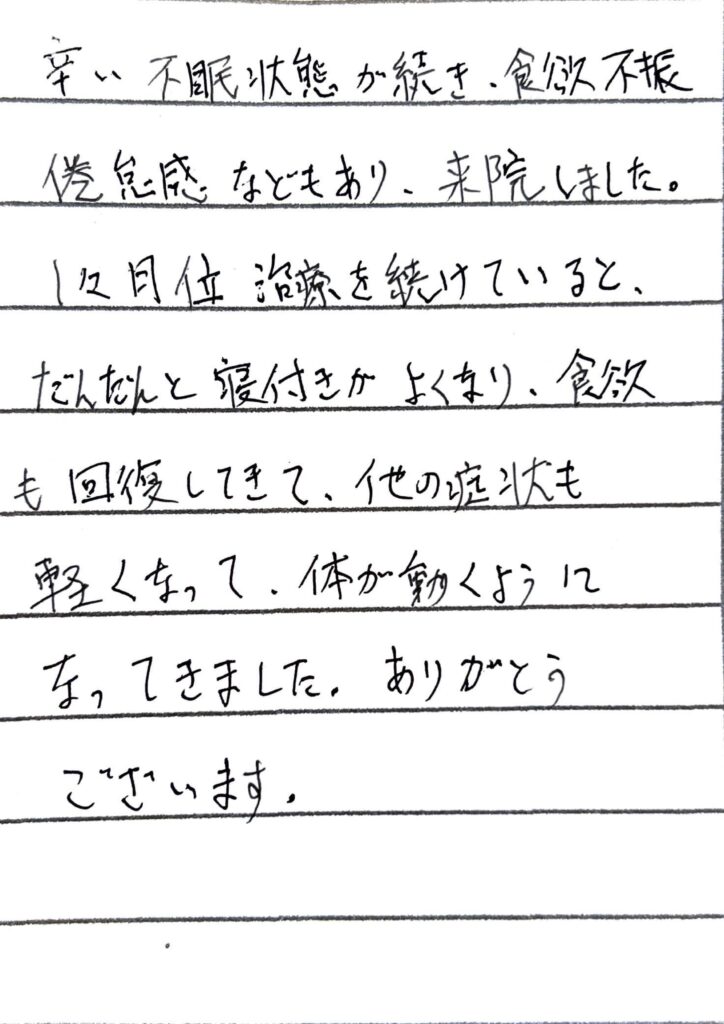 辛い不眠状態が続き、食欲不振
倦怠感などもあり、来院しました。
1ヶ月位治療を続けていると、
だんだんと寝付きがよくなり、食欲
も回復してきて、他の症状も
軽くなって、体が動くように
なってきました。ありがとう
ございます。